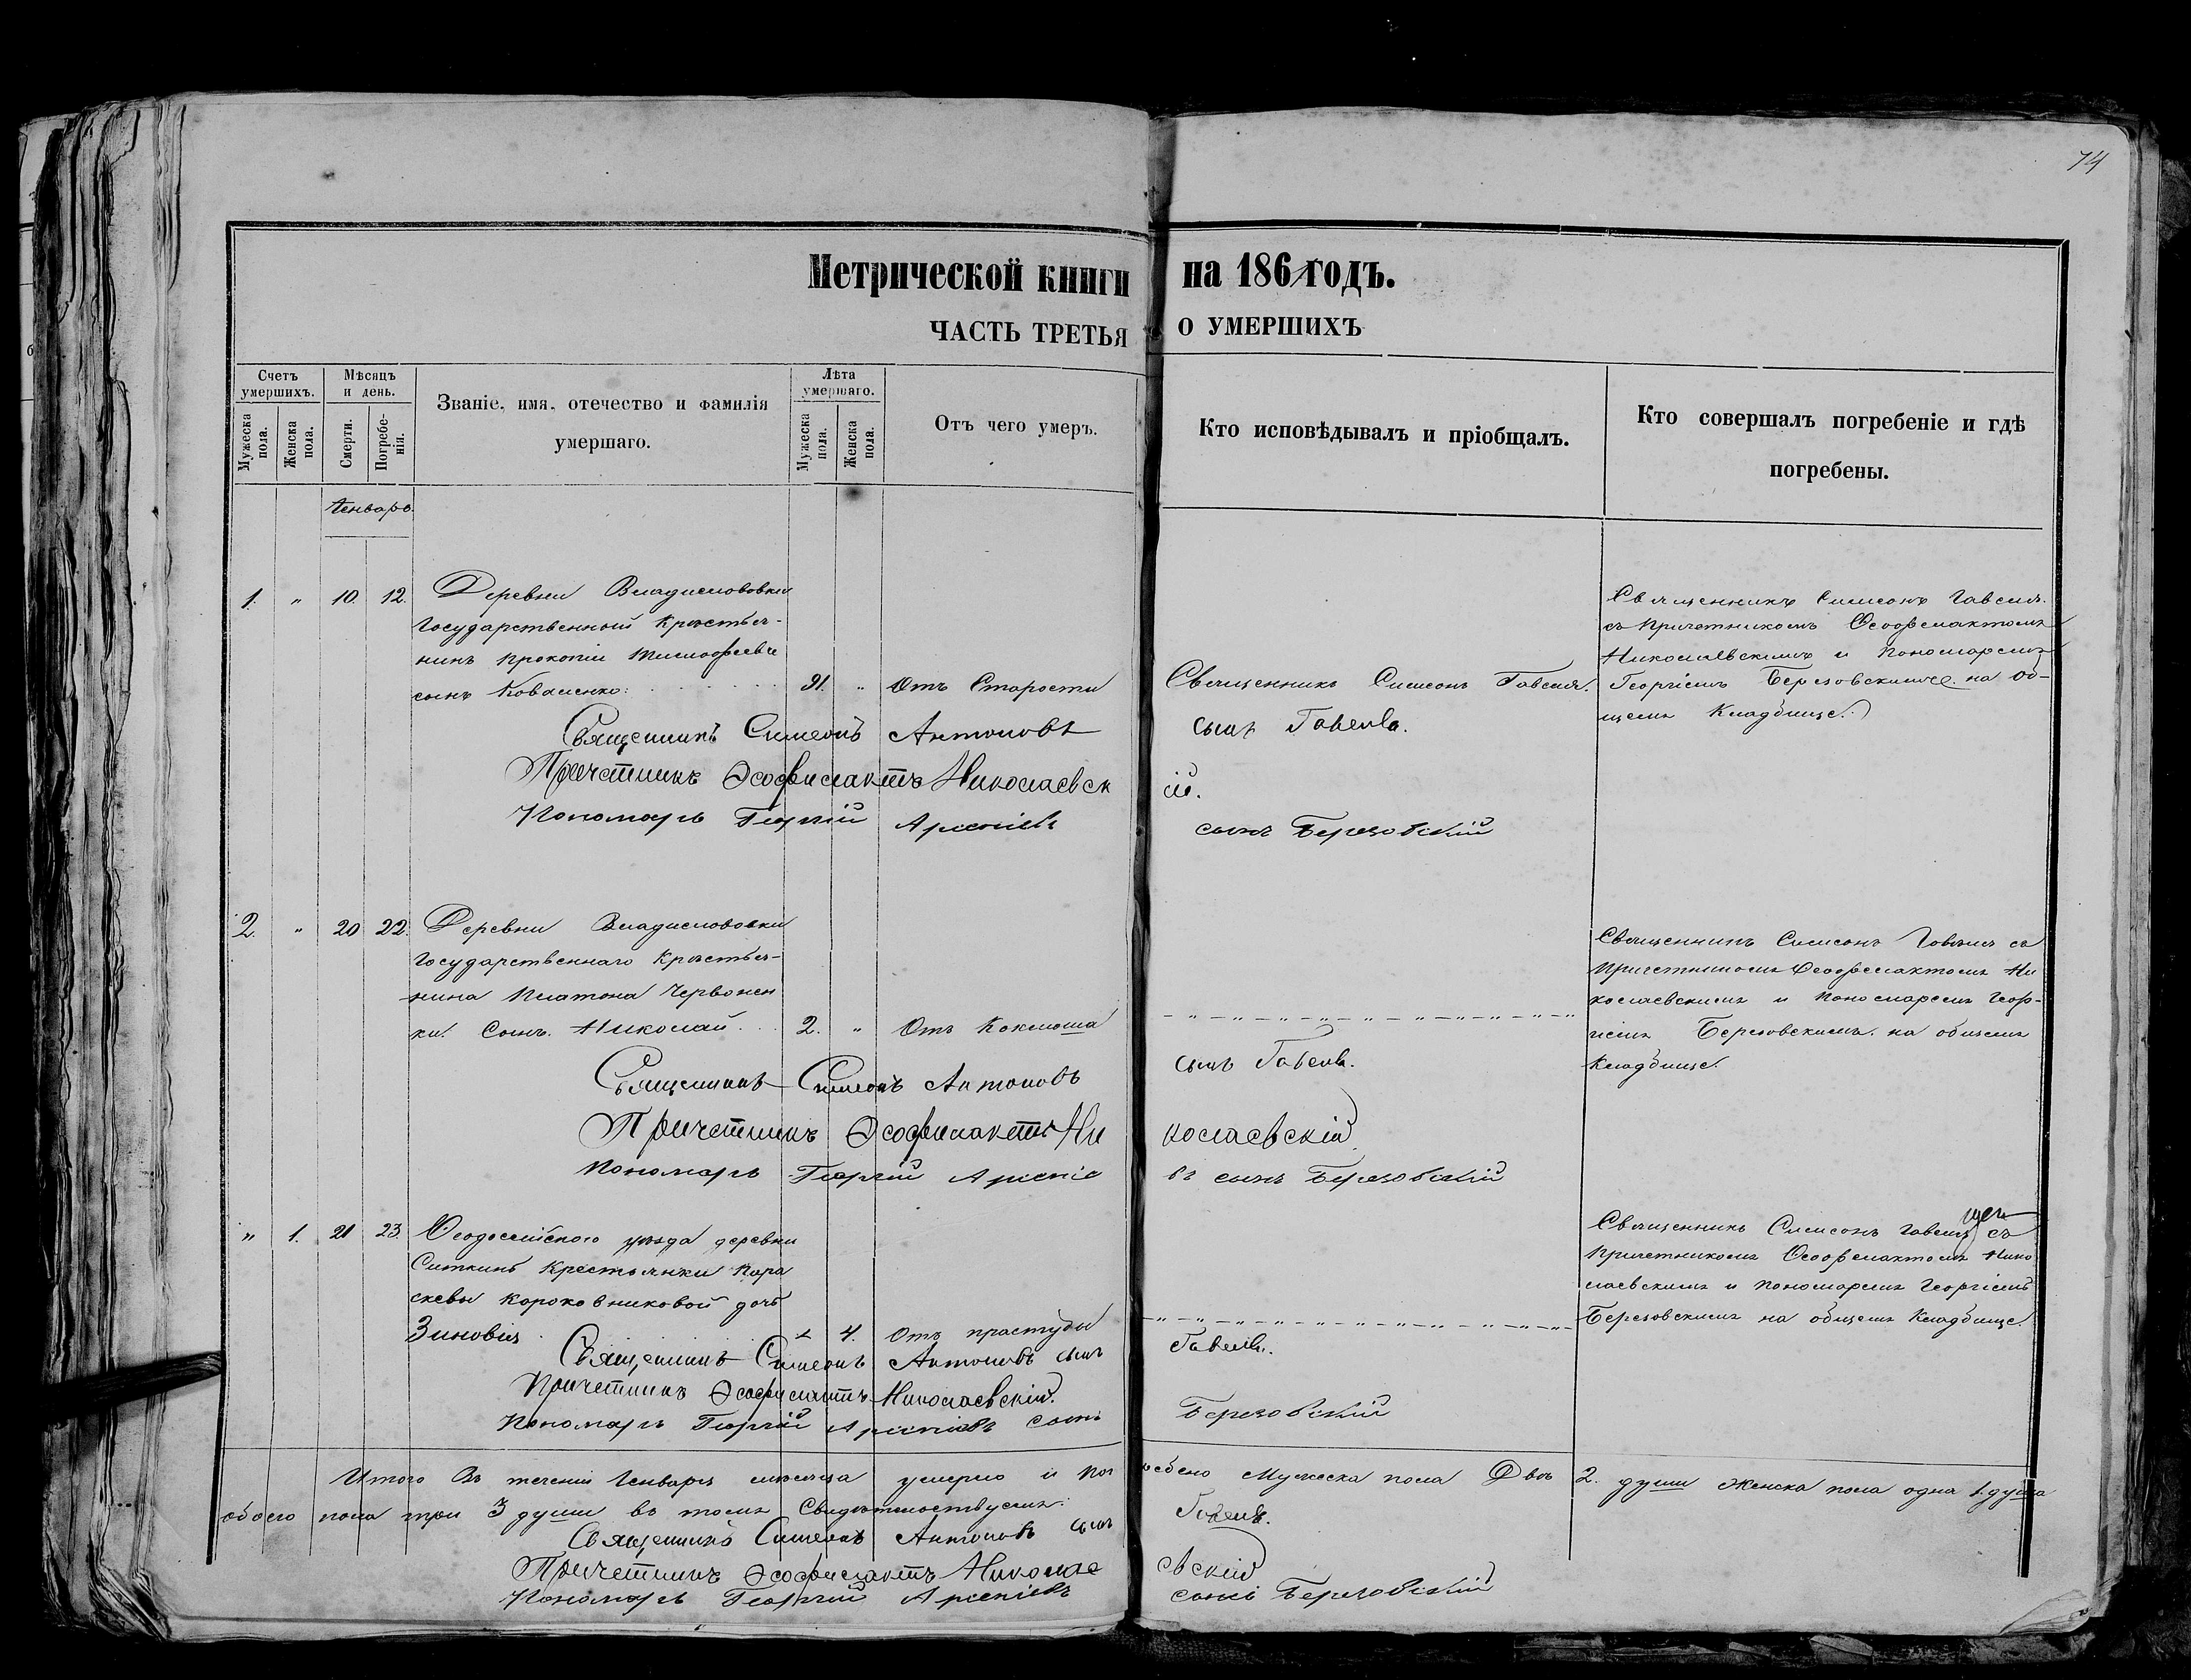 74
Метрической книги на 186 годъ.
ЧАСТЬ ТРЕТЬЯ О УМЕРШИХЪ
Счетъ умершихъ.
Мужеска пола.
Женска пола.
Мѣсяцъ и день.
Смерти.
Погребе-нія.
Званіе, имя, отечество и фамилія
умершаго.
Лѣта умершаго.
Мужеска пола.
Женска пола.
Отъ чего умеръ.
Кто исповѣдывалъ и пріобщалъ.
Кто совершалъ погребеніе и гдѣ
погребены.
Генварь.
1. " 10. 12. Деревни Владиславовки
Государственный Крестья-
нинъ Прокопій Тимофеевъ
сынъ Коваленко 91. " Отъ Старости
Священникъ Симеонъ Гавеля.
Священникъ Симеонъ Гавеля.
съ Причетникомъ Ѳеофилактомъ
Николаевскимъ и Пономаремъ
Георгіемъ Березовскимъ на об-
щемъ Кладбище.
Священникъ Симеонъ Антоновъ сынъ Гавеля.
Причетникъ Ѳеофилактъ Николаевскій.
Пономарь Георгій Арсеніевъ сынъ Березовскій
2. " 20 22. Деревни Владиславовки
Государственнаго Крестья-
нина Платона Червонен
ки. Сынъ Николай 2. " Отъ Коклюша
Священникъ Симеонъ Гавеля съ
Причетникомъ Ѳеофилактомъ Ни
колаевскимъ и Пономаремъ Геор-
гіемъ Березовскимъ на общемъ
Кладбище.
Священникъ Симеонъ Антоновъ сынъ Гавеля.
Причетникъ Ѳеофилактъ Николаевскій
Пономарь Георгій Арсеніевъ сынъ Березовскій
" 1. 21 23. Ѳеодосійского уѣзда деревни
Ситкинъ Крестьянки Пара
скевы дочь
Зиновія 4. Отъ простуды
Священникъ Симеонъ Гавеля съ
Причетникомъ Ѳеофилактомъ Нико
лаевскимъ и Пономаремъ Георгіемъ
Березовскимъ на общемъ Кладбище.
Священникъ Симеонъ Антоновъ сынъ Гавеля.
Причетникъ Ѳеофилактъ Николаевскій.
Пономарь Георгій Арсеніевъ сынъ Березовскій
Итого Въ теченіи Генваря мѣсяца умерло и погребено Мужеска пола Двѣ 2. души Женска пола одна 1. душа
обоего пола три 3 души въ томъ Свидѣтельствуемъ:
Священникъ Симеонъ Антоновъ сынъ Гавеля.
Причетникъ Ѳеофилактъ Николаевскій
Пономарь Георгій Арсеніевъ сынъ Березовскій